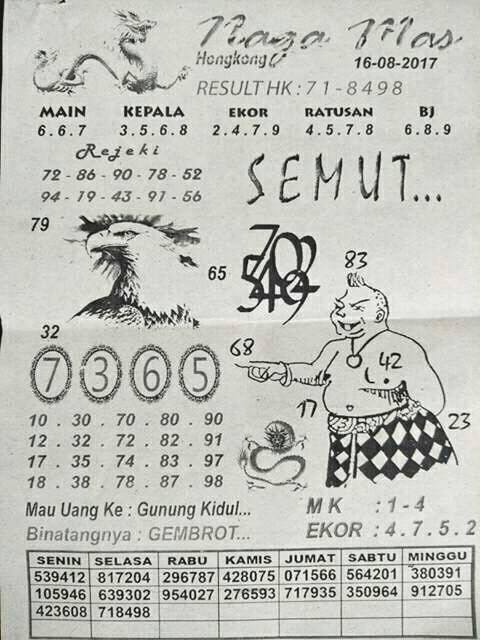 Naga Mas
Hongkong
16-08-2017
RESULT HK : 71-8498
MAIN KEPALA EKOR RATUSAN BJ
6.6.7 3.5.6.8 2.4.7.9 4.5.7.8 6.8.9
Rejeki
72 - 86 - 90 - 78 - 52
94 - 19 - 43 - 91 - 56
SEMUT...
79
65
83
32
68
42
7 3 6 5
17
23
10 . 30 . 70 . 80 . 90
12 . 32 . 72 . 82 . 91
17 . 35 . 74 . 83 . 97
18 . 38 . 78 . 87 . 98
Mau Uang Ke : Gunung Kidul...
MK : 1-4
Binatangnya : GEMBROT...
EKOR : 4.7.5.2
SENIN SELASA RABU KAMIS JUMAT SABTU MINGGU
539412 817204 296787 428075 071566 564201 380391
105946 639302 954027 276593 717935 350964 912705
423608 718498